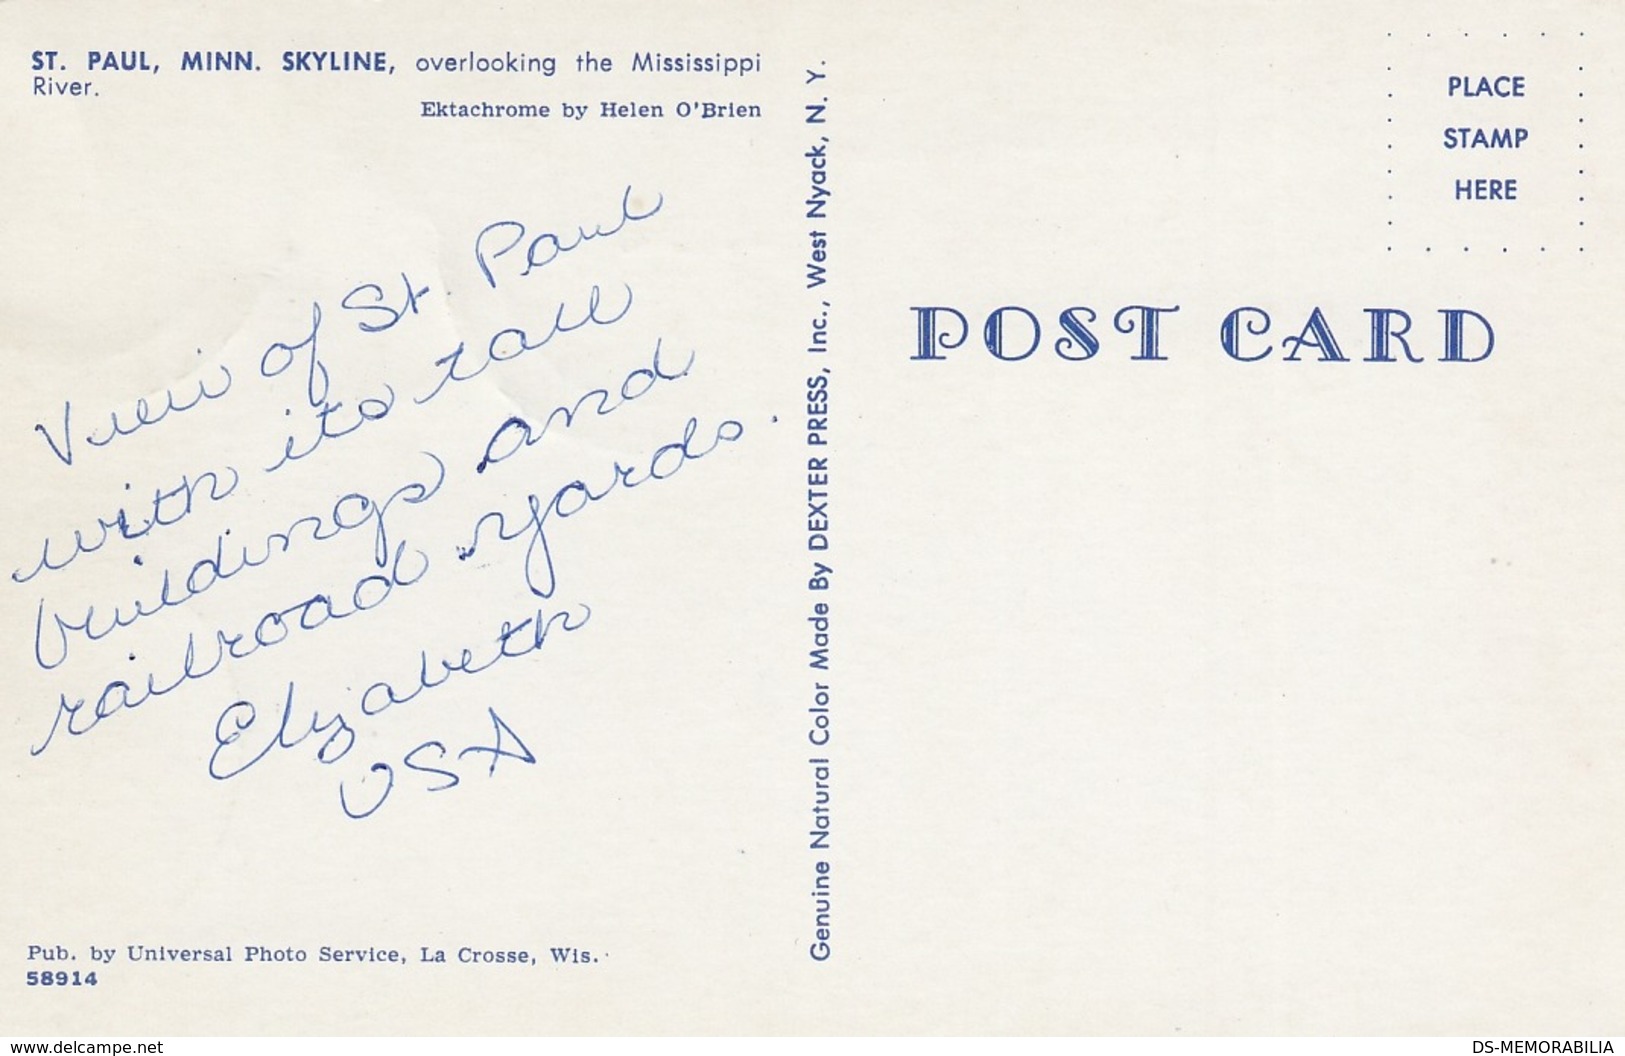 ST. PAUL, MINN. SKYLINE, overlooking the Mississippi
River.
Ektachrome by Helen O'Brien
View of St Paul
with its tall
buildings and
railroad yards.
Elizabeth
USA
Pub. by Universal Photo Service, La Crosse, Wis.
58914
Genuine Natural Color Made By DEXTER PRESS, Inc., West Nyack, N. Y.
PLACE
STAMP
HERE
POST CARD
www.delcampe.net
DS-MEMORABILIA